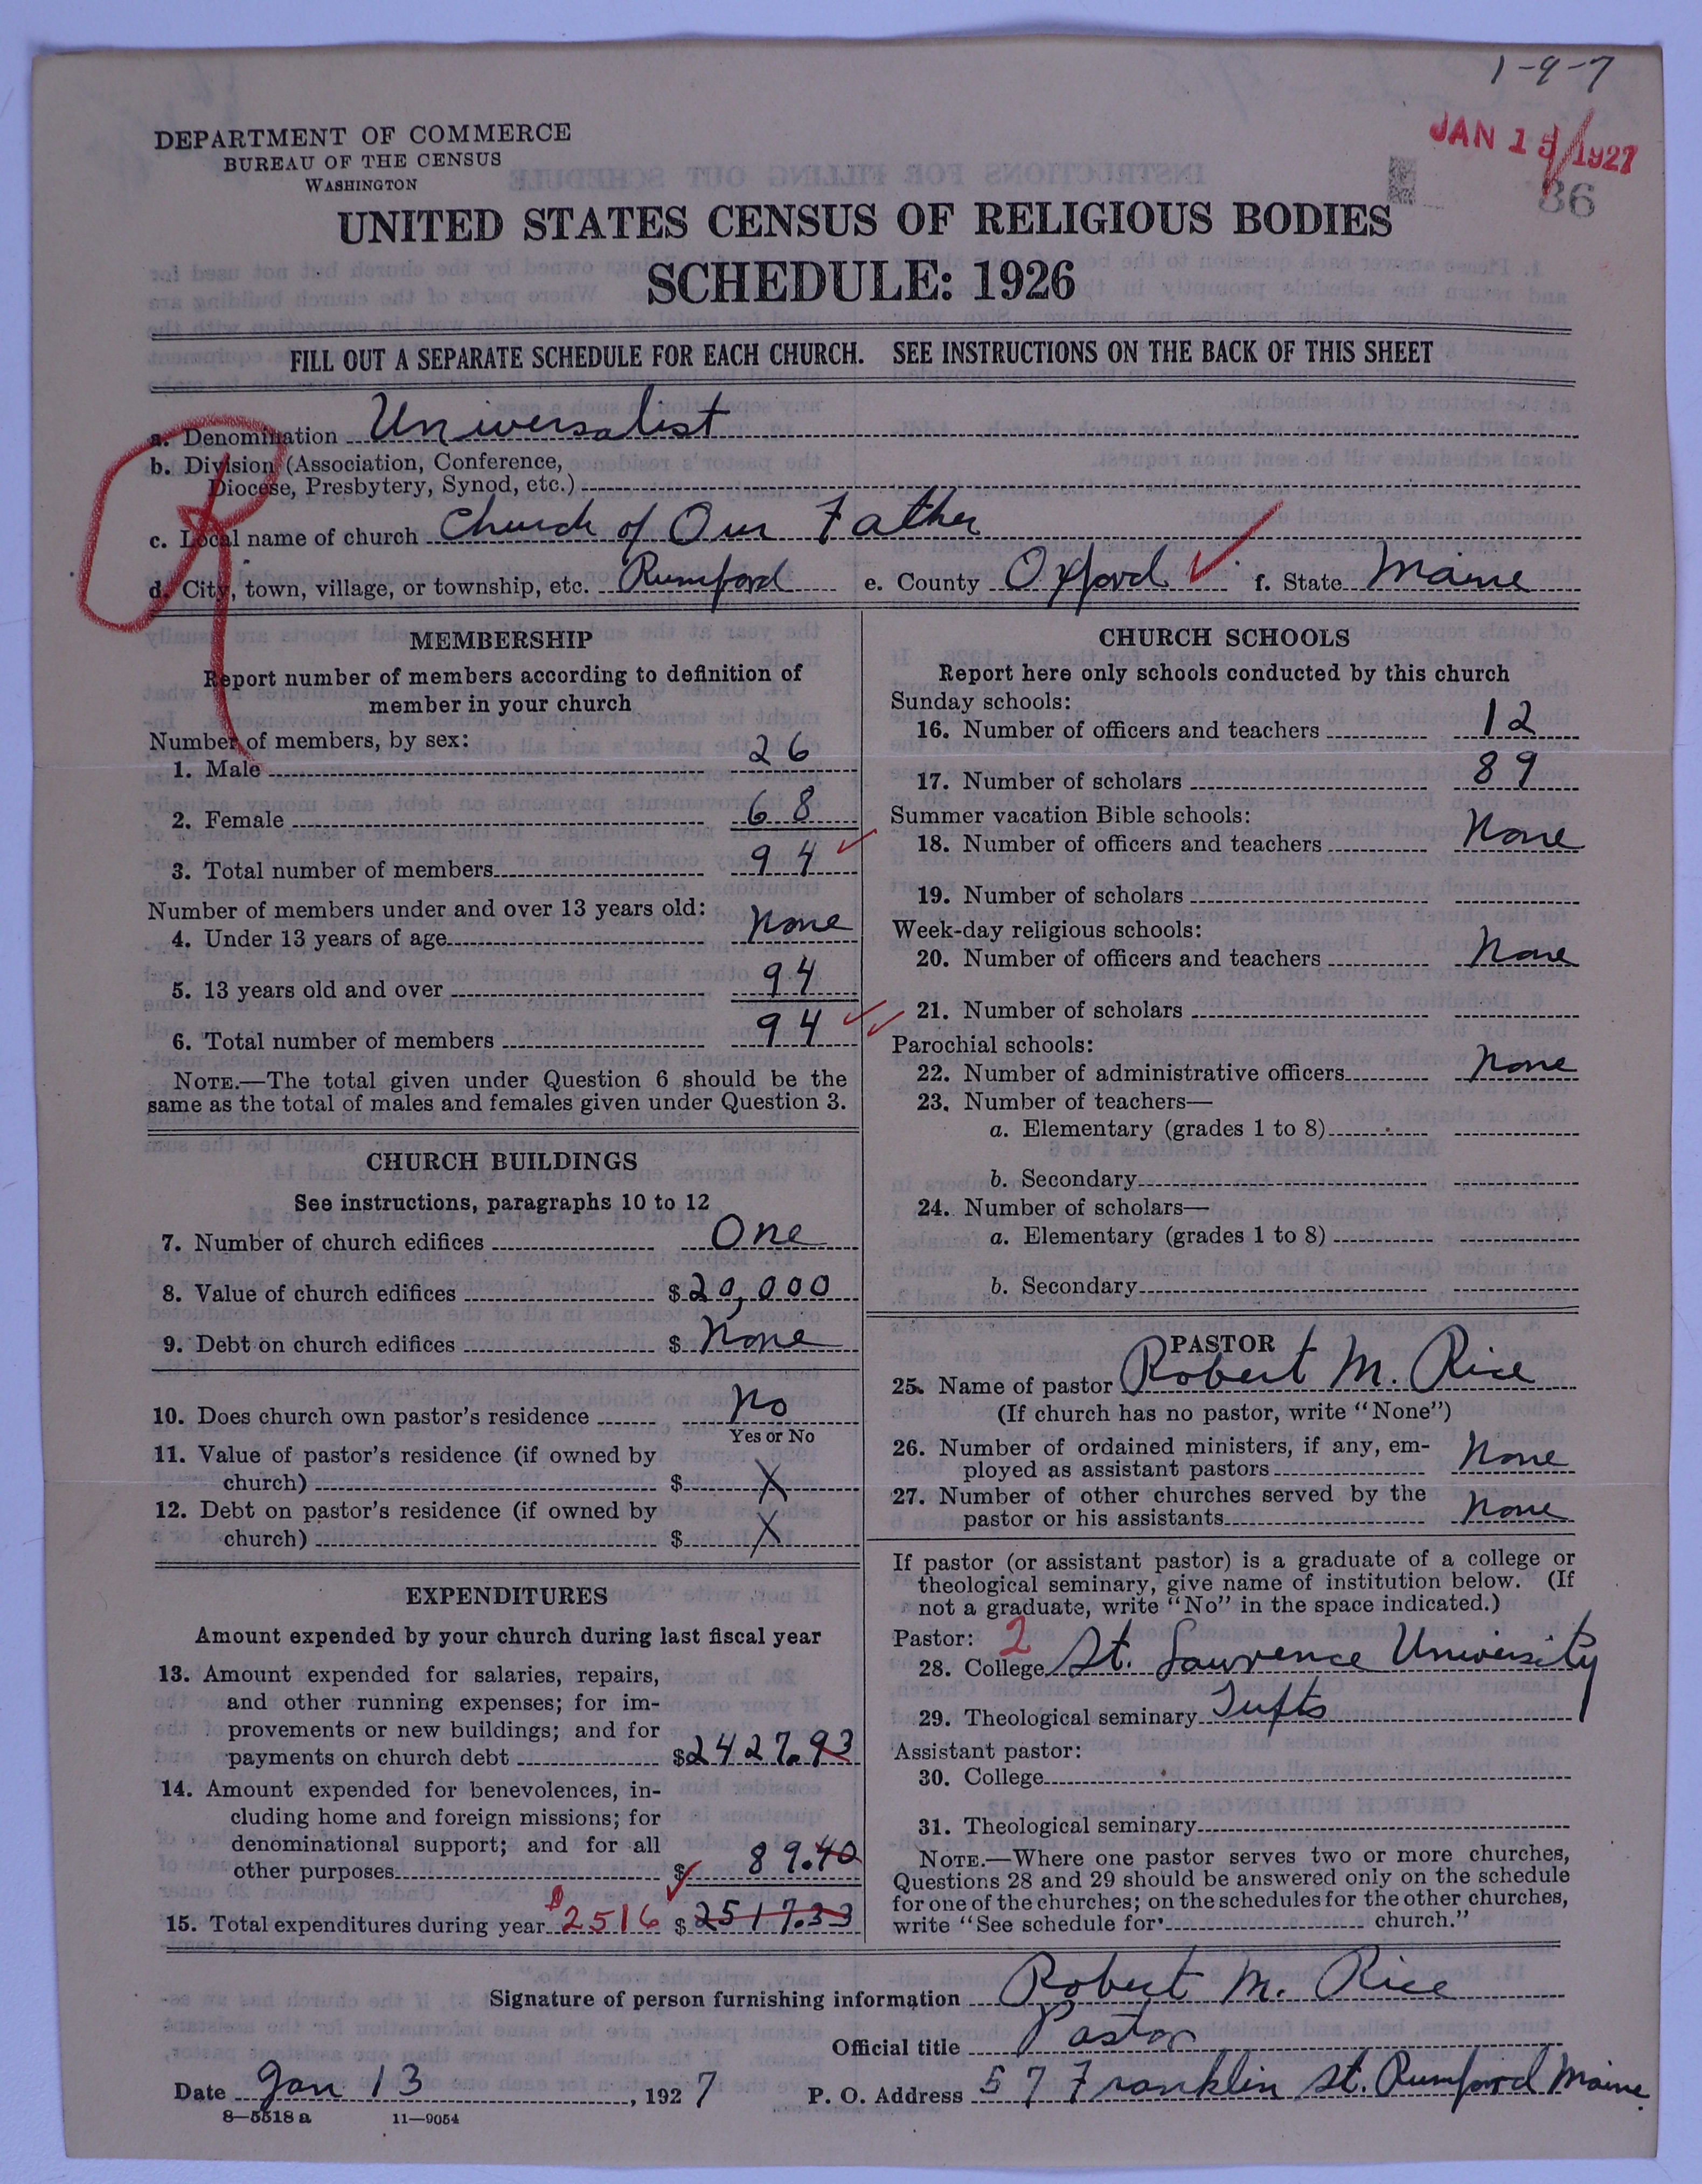 1-9-7
JAN 15 1927
36
DEPARTMENT OF COMMERCE
BUREAU OF THE CENSUS
WASHINGTON
UNITED STATES CENSUS OF RELIGIOUS BODIES
SCHEDULE: 1926
FILL OUT A SEPARATE SCHEDULE FOR EACH CHURCH. SEE INSTRUCTIONS ON THE BACK OF THIS SHEET
a. Denomination Universalist
b. Division (Association, Conference,
Diocese, Presbytery, Synod, etc.)
c. Local name of church Church of Our Father
d. City, town, village, or township, etc. Rumford e. County Oxford f. State Maine
MEMBERSHIP
Report number of members according to definition of
member in your church
Number of members, by sex:
1. Male 26
2. Female 68
3. Total number of members 94
Number of members under and over 13 years old:
4. Under 13 years of age None
5. 13 years old and over 94
6. Total number of members 94
NOTE.—The total given under Question 6 should be the
same as the total of males and females given under Question 3.
CHURCH BUILDINGS
See instructions, paragraphs 10 to 12
7. Number of church edifices One
8. Value of church edifices $20,000
9. Debt on church edifices $ None
10. Does church own pastor's residence No
Yes or No
11. Value of pastor's residence (if owned by
church) $ X
12. Debt on pastor's residence (if owned by
church) $ X
EXPENDITURES
Amount expended by your church during last fiscal year
13. Amount expended for salaries, repairs,
and other running expenses; for im-
provements or new buildings; and for
payments on church debt $2427.93
14. Amount expended for benevolences, in-
cluding home and foreign missions; for
denominational support; and for all
other purposes $ 89.40
15. Total expenditures during year $2516 $2517.33
CHURCH SCHOOLS
Report here only schools conducted by this church
Sunday schools:
16. Number of officers and teachers 12
17. Number of scholars 89
Summer vacation Bible schools:
18. Number of officers and teachers None
19. Number of scholars
Week-day religious schools:
20. Number of officers and teachers None
21. Number of scholars
Parochial schools:
22. Number of administrative officers None
23. Number of teachers—
a. Elementary (grades 1 to 8)
b. Secondary
24. Number of scholars—
a. Elementary (grades 1 to 8)
b. Secondary
PASTOR
25. Name of pastor Robert M. Rice
(If church has no pastor, write "None")
26. Number of ordained ministers, if any, em-
ployed as assistant pastors None
27. Number of other churches served by the
pastor or his assistants None
If pastor (or assistant pastor) is a graduate of a college or
theological seminary, give name of institution below. (If
not a graduate, write "No" in the space indicated.)
Pastor: 2
28. College St. Lawrence University
29. Theological seminary Tufts
Assistant pastor:
30. College
31. Theological seminary
NOTE.—Where one pastor serves two or more churches,
Questions 28 and 29 should be answered only on the schedule
for one of the churches; on the schedules for the other churches,
write "See schedule for church."
Signature of person furnishing information Robert M. Rice
Official title Pastor
Date Jan 13, 1927 P. O. Address 577 Franklin St. Rumford Maine.
8—5518 a 11—9054